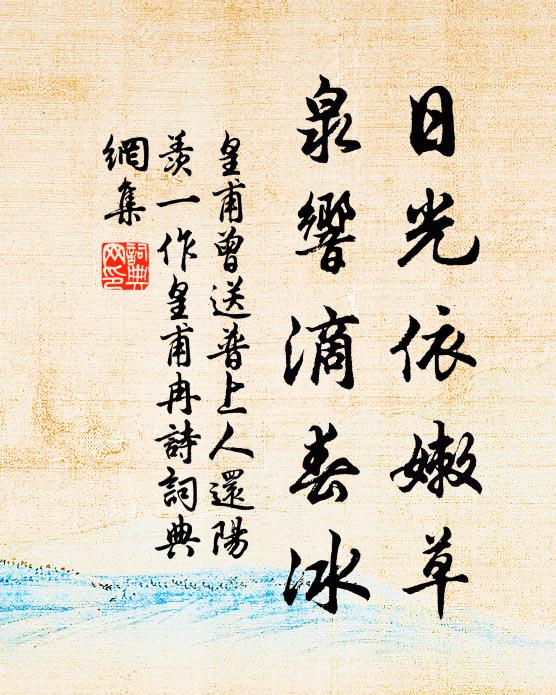 日光依嫩草
泉響滴春冰
皇甫曾送普上人還陽
羨一作皇甫冉詩詞典
網集
詞典
网印